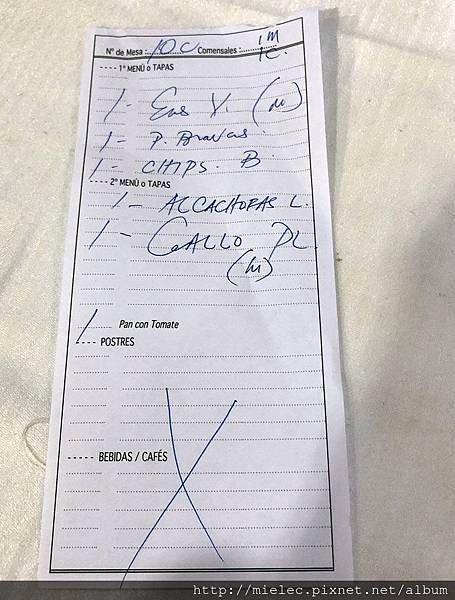 Nº de Mesa: 10C Comensales: 1M
1C.
---- 1º MENÚ o TAPAS
1 - Ens V. (M)
1 - P. Bravas.
1 - CHIPS. B.
---- 2º MENÚ o TAPAS
1 - ALCACHOFAS L.
1 - GALLO PL.
(M)
1 Pan con Tomate
---- POSTRES
----- BEBIDAS / CAFÉS
http://mielec.pixnet.net/album